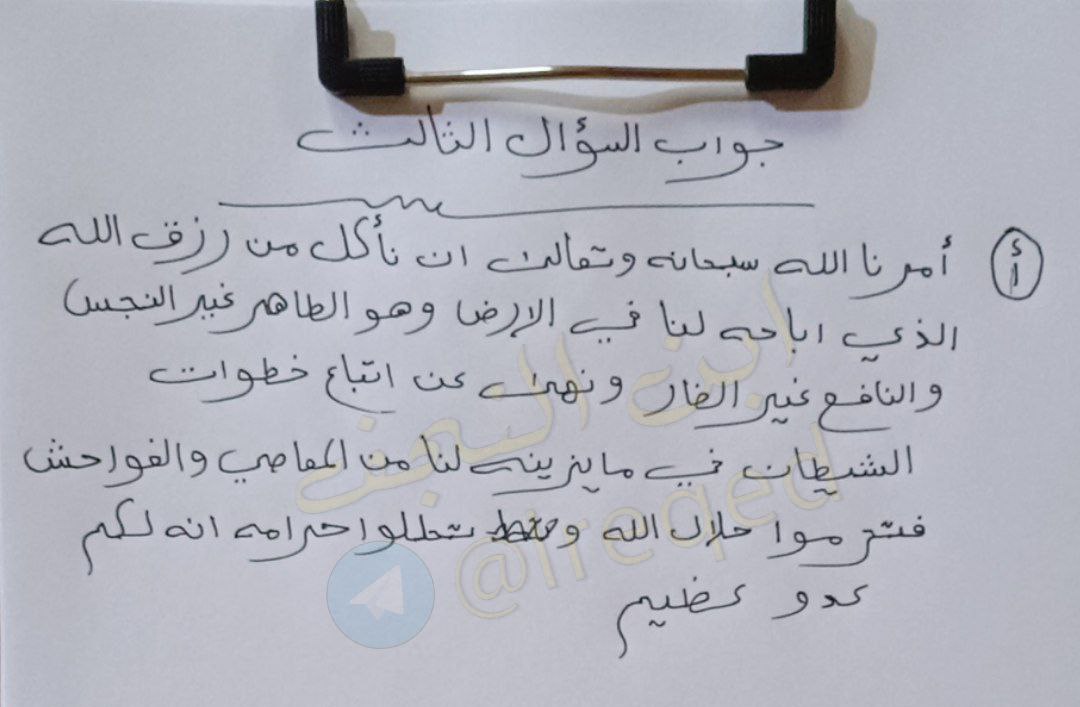 جواب السؤال الثالث
أ أمرنا الله سبحانه وتعالى ان نأكل من رزق الله
الذي اباحه لنا في الارض وهو الطاهر غير النجس
والنافع غير الضار ونهى عن اتباع خطوات
الشيطان في مايزينه لنا من المعاصي والفواحش
فتحرموا حلال الله و تحللوا حرامه انه لكم
عدو عظيم
ابن النجف
@lreqed